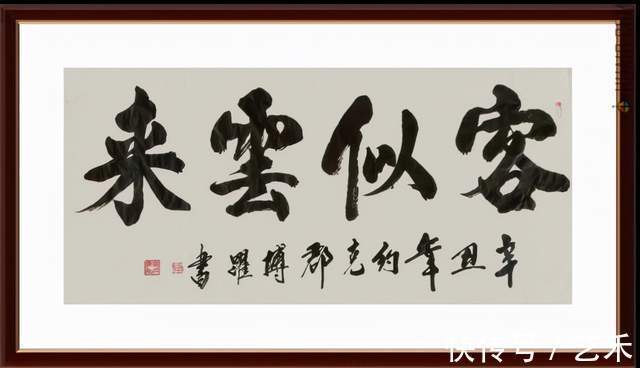 客似雲来
辛丑年约克郡博躍書
快传号 / 艺禾